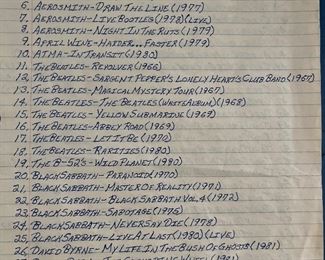 6. AEROSMITH-DRAW THE LINE (1977)
7. AEROSMITH-LIVE BOOTLEG (1978)(LIVE)
8. AEROSMITH-NIGHT IN THE RUTS (1979)
9. APRIL WINE-HARDER...FASTER (1979)
10. ATMA-IN TRANSIT (1980)
11. THE BEATLES-REVOLVER (1966)
12. THE BEATLES-SARGENT PEPPER'S LONELY HEARTS CLUB BAND (1967)
13. THE BEATLES-MAGICAL MYSTERY TOUR (1967)
14. THE BEATLES-THE BEATLES (WHITE ALBUM) (1968)
15. THE BEATLES-YELLOW SUBMARINE (1969)
16. THE BEATLES-ABBEY ROAD (1969)
17. THE BEATLES-LET IT BE (1970)
18. THE BEATLES-RARITIES (1980)
19. THE B-52S-WILD PLANET (1980)
20. BLACK SABBATH-PARANOID (1970)
21. BLACK SABBATH-MASTER OF REALITY (1971)
22. BLACK SABBATH-BLACK SABBATH VOL. 4 (1972)
23. BLACK SABBATH-SABOTAGE (1975)
24. BLACK SABBATH-NEVER SAY DIE (1978)
25. BLACK SABBATH-LIVE AT LAST (1980) (LIVE)
26. DAVID BYRNE-MY LIFE IN THE BUSH OF GHOSTS (1981)